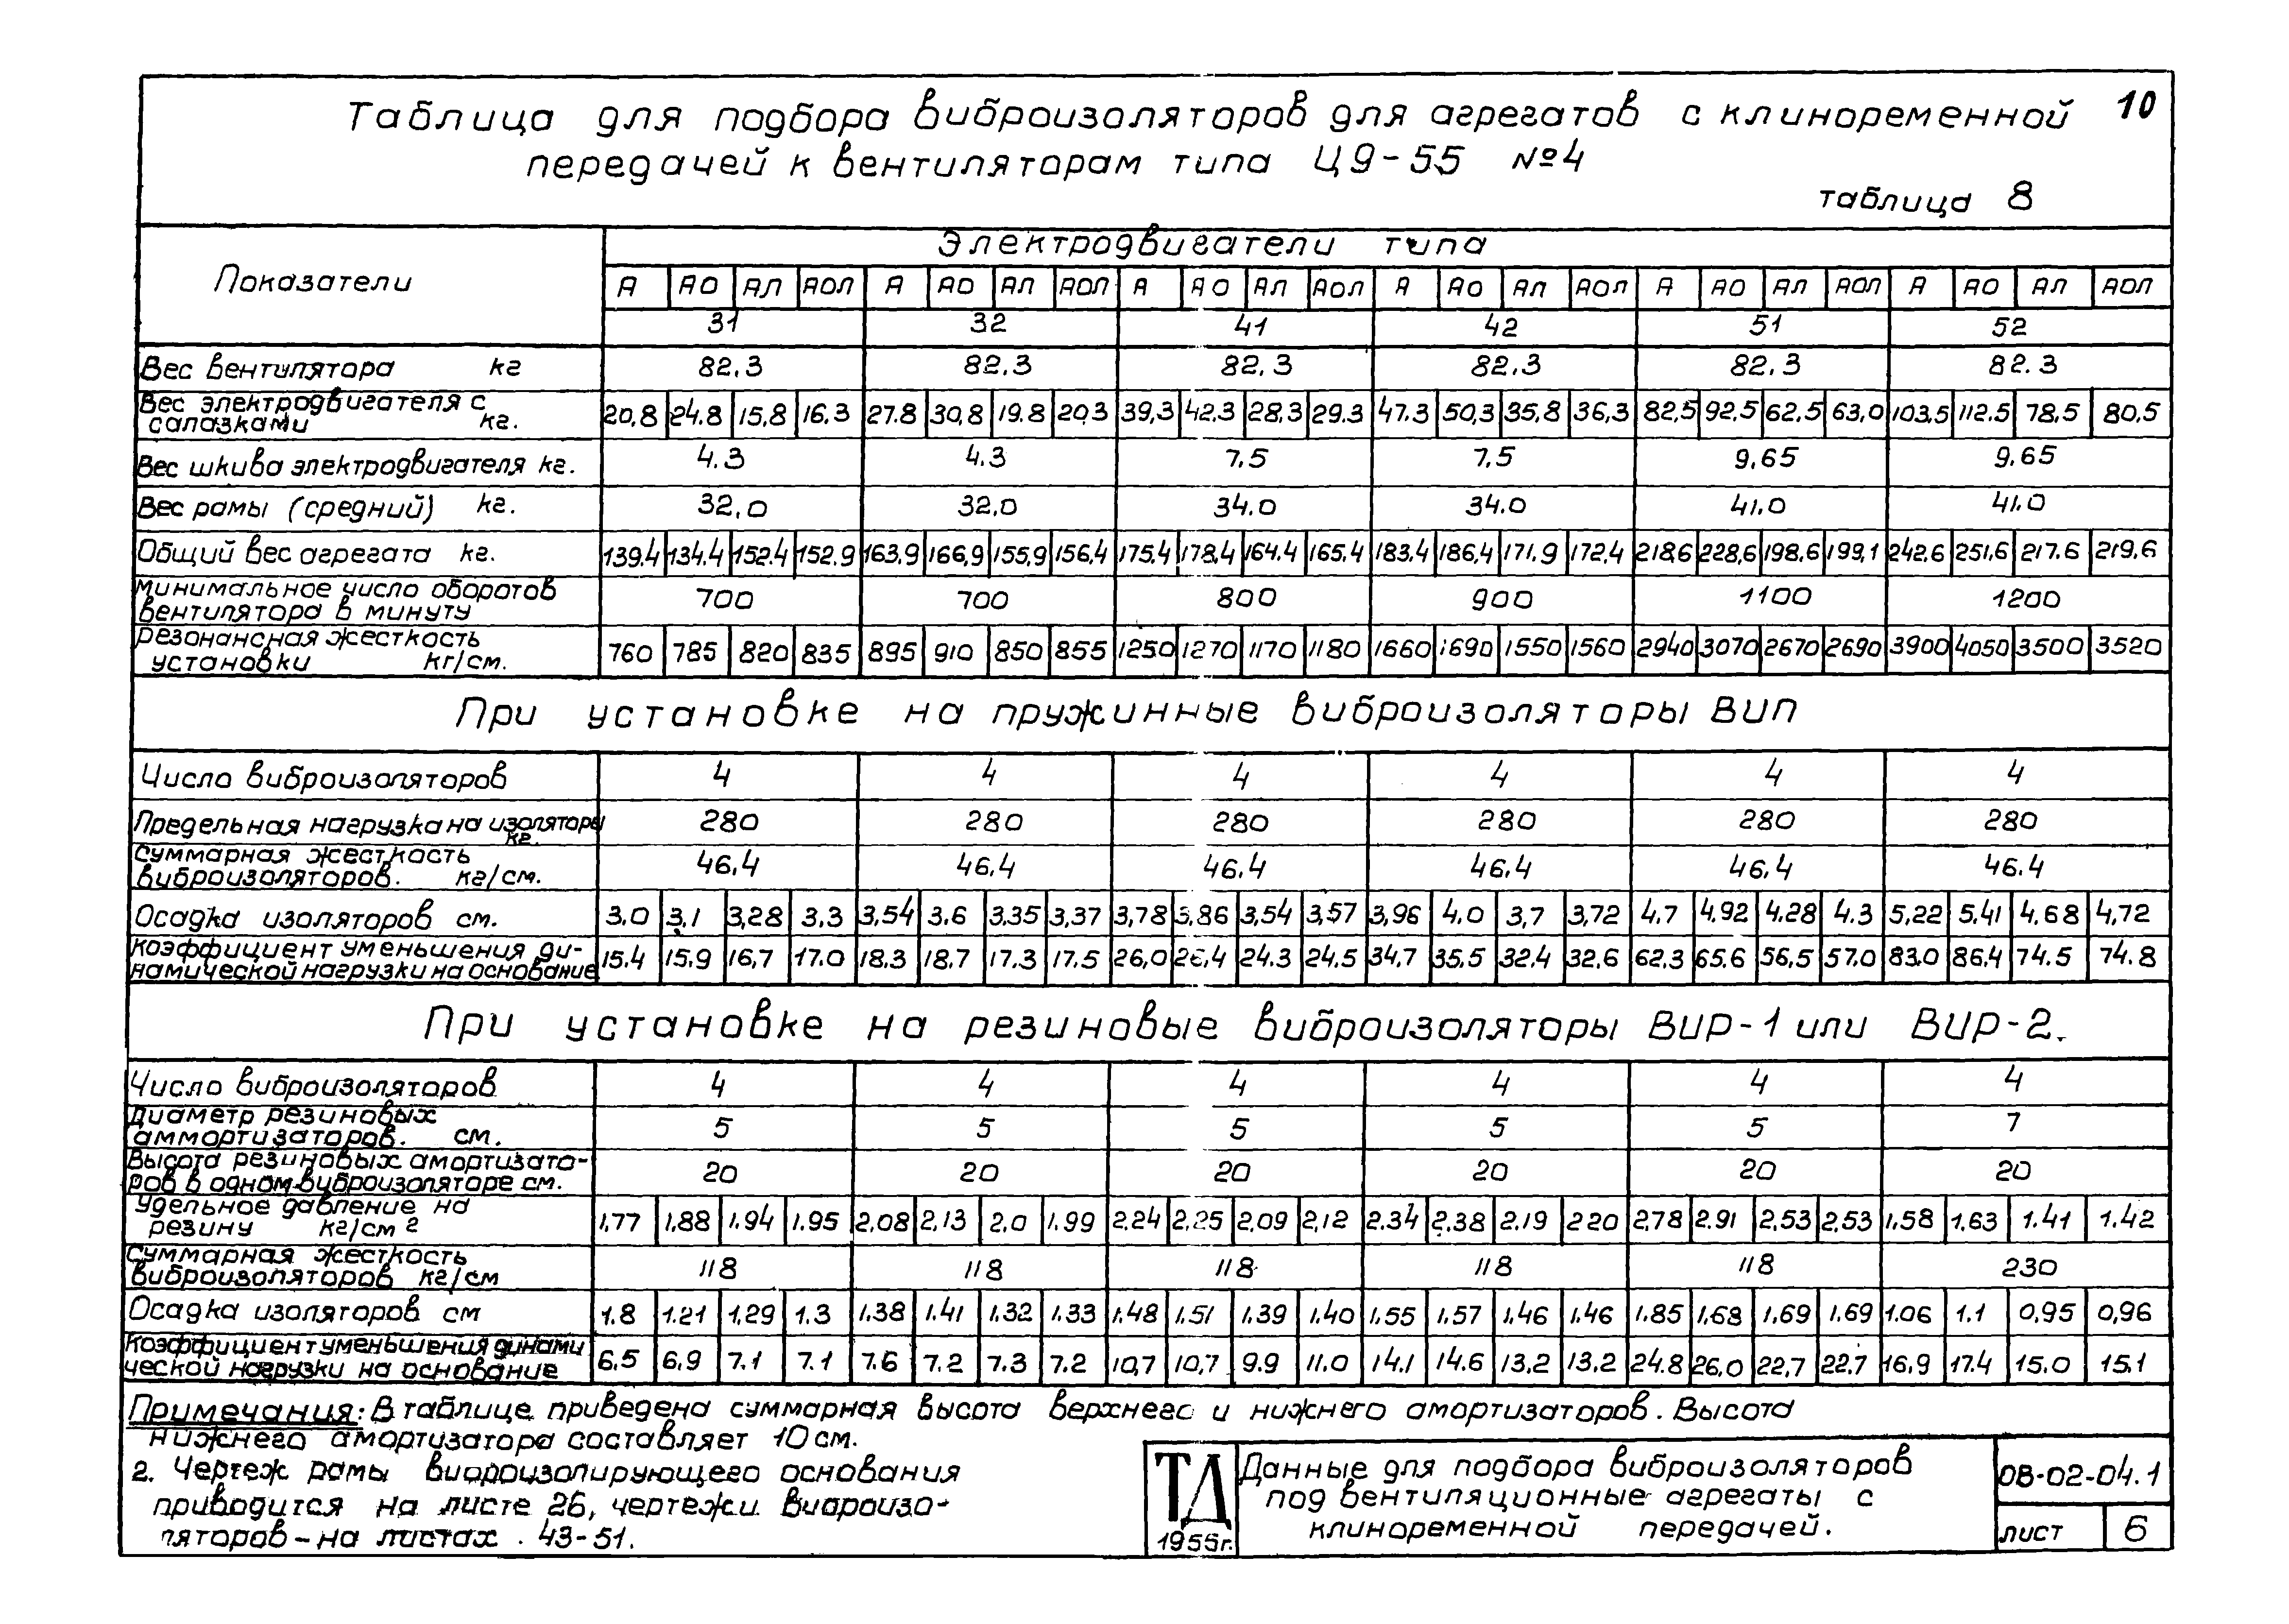 10
Таблица для подбора виброизоляторов для агрегатов с клиноременной
передачей к вентиляторам типа Ц9-55 №4
таблица 8
Показатели
Электродвигатели типа
А АО АЛ АОЛ А АО АЛ АОЛ А АО АЛ АОЛ А АО АЛ АОЛ А АО АЛ АОЛ А АО АЛ АОЛ
31 32 41 42 51 52
Вес вентилятора кг 82.3 82.3 82.3 82.3 82.3 82.3
Вес электродвигателя с
салазками кг. 20,8 24.8 15,8 16.3 27.8 30,8 19.8 20,3 39,3 42.3 28.3 29.3 47.3 50,3 35,8 36,3 82,5 92.5 62.5 63,0 103,5 112.5 78,5 80,5
Вес шкива электродвигателя кг. 4.3 4.3 7.5 7,5 9,65 9,65
Вес рамы (средний) кг. 32,0 32,0 34.0 34.0 41.0 41.0
Общий вес агрегата кг. 139.4 134.4 152.4 152.9 163,9 166,9 155,9 156,4 175.4 178,4 164.4 165.4 183.4 186,4 171.9 172,4 218.6 228,6 198.6 199,1 242.6 251,6 217.6 219.6
Минимальное число оборотов
вентилятора в минуту 700 700 800 900 1100 1200
Резонансная жесткость
установки кг/см. 760 785 820 835 895 910 850 855 1250 1270 1170 1180 1660 1690 1550 1560 2940 3070 2670 2690 3900 4050 3500 3520
При установке на пружинные виброизоляторы ВИП
Число виброизоляторов 4 4 4 4 4 4
Предельная нагрузка на изоляторы
кг. 280 280 280 280 280 280
Суммарная жесткость
виброизоляторов. кг/см. 46,4 46,4 46,4 46.4 46,4 46.4
Осадка изоляторов см. 3.0 3,1 3,28 3.3 3,54 3.6 3.35 3,37 3,78 3,86 3,54 3,57 3,96 4.0 3,7 3,72 4.7 4,92 4.28 4.3 5,22 5.41 4,68 4,72
Коэффициент уменьшения ди-
намической нагрузки на основание 15.4 15,9 16,7 17.0 18.3 18.7 17.3 17.5 26,0 26,4 24.3 24,5 34,7 35,5 32.4 32.6 62.3 65.6 56,5 57.0 83.0 86,4 74.5 74.8
При установке на резиновые виброизоляторы ВИР-1 или ВИР-2.
Число виброизоляторов 4 4 4 4 4 4
Диаметр резиновых
аммортизаторов. см. 5 5 5 5 5 7
Высота резиновых амортизато-
ров в одном виброизоляторе см. 20 20 20 20 20 20
Удельное давление на
резину кг/см 2 1,77 1,88 1,94 1.95 2,08 2,13 2.0 1.99 2,24 2,25 2,09 2,12 2.34 2.38 2.19 2.20 2,78 2.91 2,53 2,53 1.58 1.63 1.41 1.42
Суммарная жесткость
виброизоляторов кг/см 118 118 118 118 118 230
Осадка изоляторов см 1.8 1.21 1,29 1.3 1,38 1.41 1.32 1.33 1,48 1,51 1.39 1.40 1.55 1.57 1.46 1.46 1.85 1.68 1.69 1.69 1.06 1.1 0,95 0,96
Коэффициент уменьшения динами
ческой нагрузки на основание 6.5 6.9 7.1 7.1 7.6 7.2 7.3 7.2 10,7 10,7 9.9 11.0 14.1 14.6 13.2 13,2 24.8 26,0 22,7 22.7 16,9 17.4 15.0 15.1
Примечания: В таблице приведена суммарная высота верхнего и нижнего амортизаторов. Высота
нижнего амортизатора составляет 10 см.
2. Чертеж рамы виброизолирующего основания
приводится на листе 26, чертежи виброизо-
ляторов - на листах . 43-51.
ТД
1955г.
Данные для подбора виброизоляторов
под вентиляционные агрегаты с
клиноременной передачей.
ОВ-02-04.1
лист 6